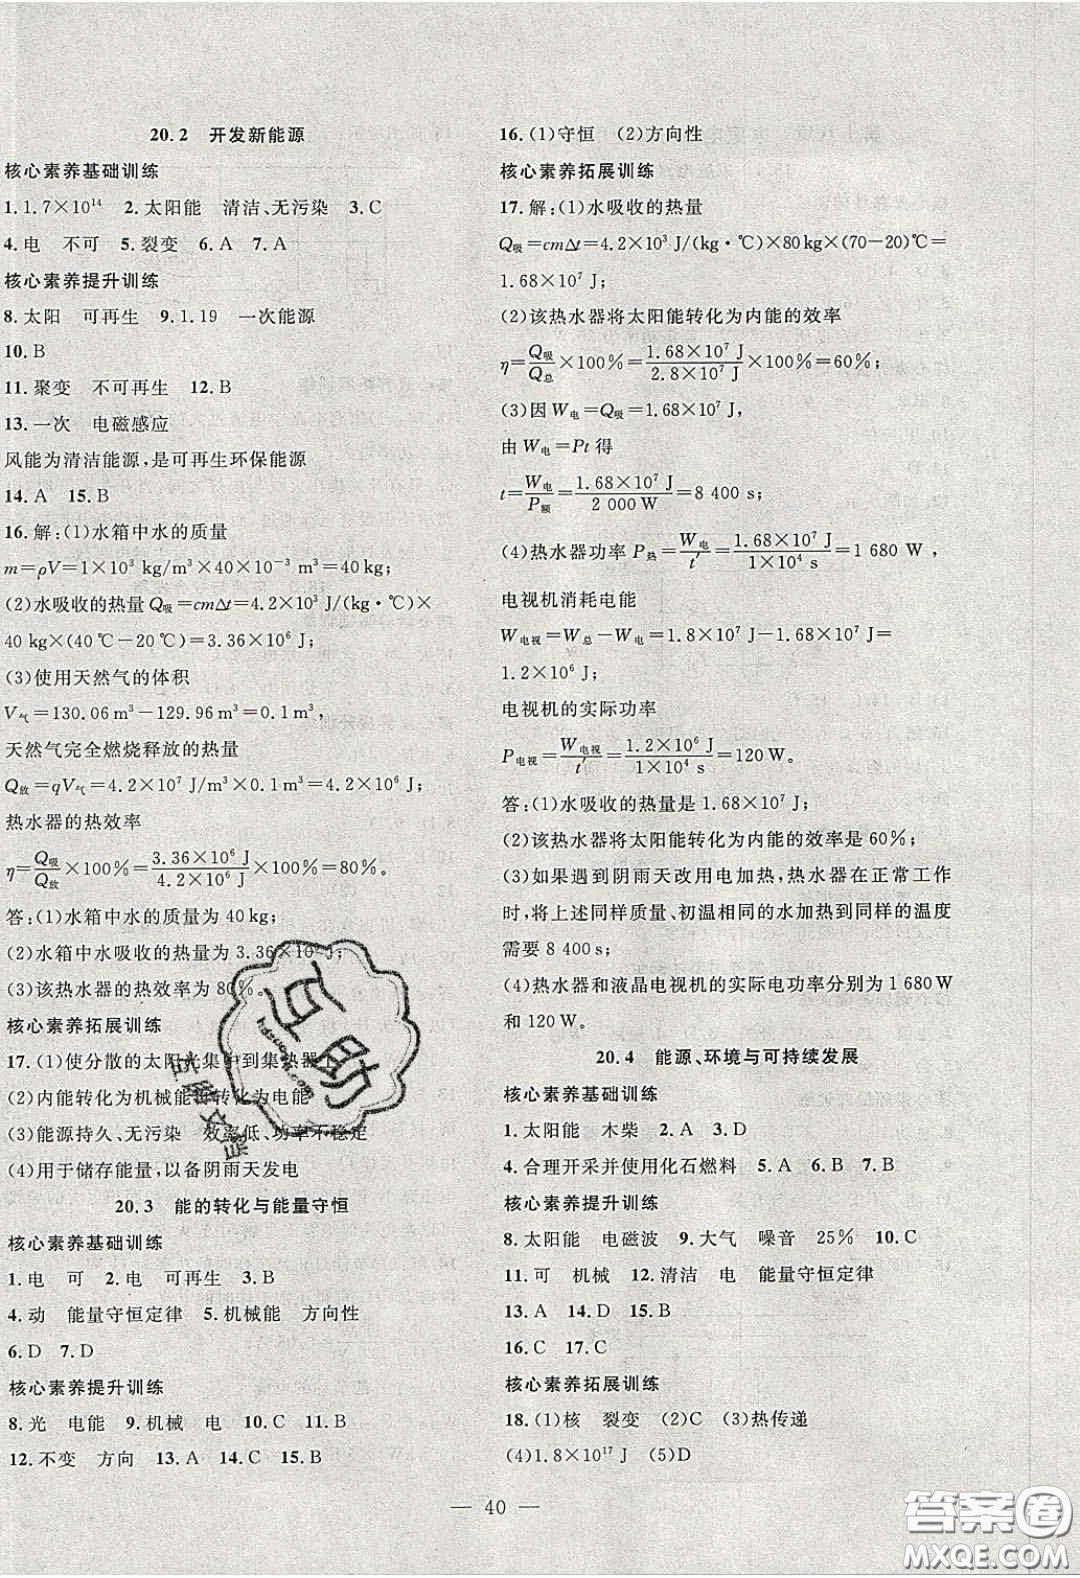 20.2 开发新能源
核心素养基础训练
1.1.7×10¹⁴ 2.太阳能 清洁、无污染 3.C
4.电 不可 5.裂变 6.A 7.A
核心素养提升训练
8.太阳 可再生 9.1.19 一次能源
10.B
11.聚变 不可再生 12.B
13.一次 电磁感应
风能为清洁能源,是可再生环保能源
14.A 15.B
16.解:(1)水箱中水的质量
m=ρV=1×10³ kg/m³×40×10⁻³ m³=40 kg;
(2)水吸收的热量Q吸=cmΔt=4.2×10³ J/(kg·℃)×
40 kg×(40℃-20℃)=3.36×10⁶ J;
(3)使用天然气的体积
V气=130.06 m³-129.96 m³=0.1 m³,
天然气完全燃烧释放的热量
Q放=qV气=4.2×10⁷ J/m³×0.1 m³=4.2×10⁶ J;
热水器的热效率
η=Q吸/Q放×100%=3.36×10⁶ J/4.2×10⁶ J×100%=80%。
答:(1)水箱中水的质量为40 kg;
(2)水箱中水吸收的热量为3.36×10⁶ J;
(3)该热水器的热效率为80%。
核心素养拓展训练
17.(1)使分散的太阳光集中到集热器上
(2)内能转化为机械能再转化为电能
(3)能源持久、无污染 效率低、功率不稳定
(4)用于储存能量,以备阴雨天发电
20.3 能的转化与能量守恒
核心素养基础训练
1.电 可 2.电 可再生 3.B
4.动 能量守恒定律 5.机械能 方向性
6.D 7.D
核心素养提升训练
8.光 电能 9.机械 电 10.C 11.B
12.不变 方向 13.A 14.C 15.B
16.(1)守恒 (2)方向性
核心素养拓展训练
17.解:(1)水吸收的热量
Q吸=cmΔt=4.2×10³ J/(kg·℃)×80 kg×(70-20)℃=
1.68×10⁷ J;
(2)该热水器将太阳能转化为内能的效率
η=Q吸/Q总×100%=1.68×10⁷ J/2.8×10⁷ J×100%=60%;
(3)因W电=Q吸=1.68×10⁷ J,
由W电=Pt得
t=W电/P额=1.68×10⁷ J/2 000 W=8 400 s;
(4)热水器功率P热=W电/t′=1.68×10⁷ J/1×10⁴ s=1 680 W,
电视机消耗电能
W电视=W总-W电=1.8×10⁷ J-1.68×10⁷ J=
1.2×10⁶ J;
电视机的实际功率
P电视=W电视/t′=1.2×10⁶ J/1×10⁴ s=120 W。
答:(1)水吸收的热量是1.68×10⁷ J;
(2)该热水器将太阳能转化为内能的效率是60%;
(3)如果遇到阴雨天改用电加热,热水器在正常工作
时,将上述同样质量、初温相同的水加热到同样的温度
需要8 400 s;
(4)热水器和液晶电视机的实际电功率分别为1 680 W
和120 W。
20.4 能源、环境与可持续发展
核心素养基础训练
1.太阳能 木柴 2.A 3.D
4.合理开采并使用化石燃料 5.A 6.B 7.B
核心素养提升训练
8.太阳能 电磁波 9.大气 噪音 25% 10.C
11.可 机械 12.清洁 电 能量守恒定律
13.A 14.D 15.B
16.C 17.C
核心素养拓展训练
18.(1)核 裂变 (2)C (3)热传递
(4)1.8×10¹⁷ J (5)D
— 40 —
互助
答案圈
MXQE.COM